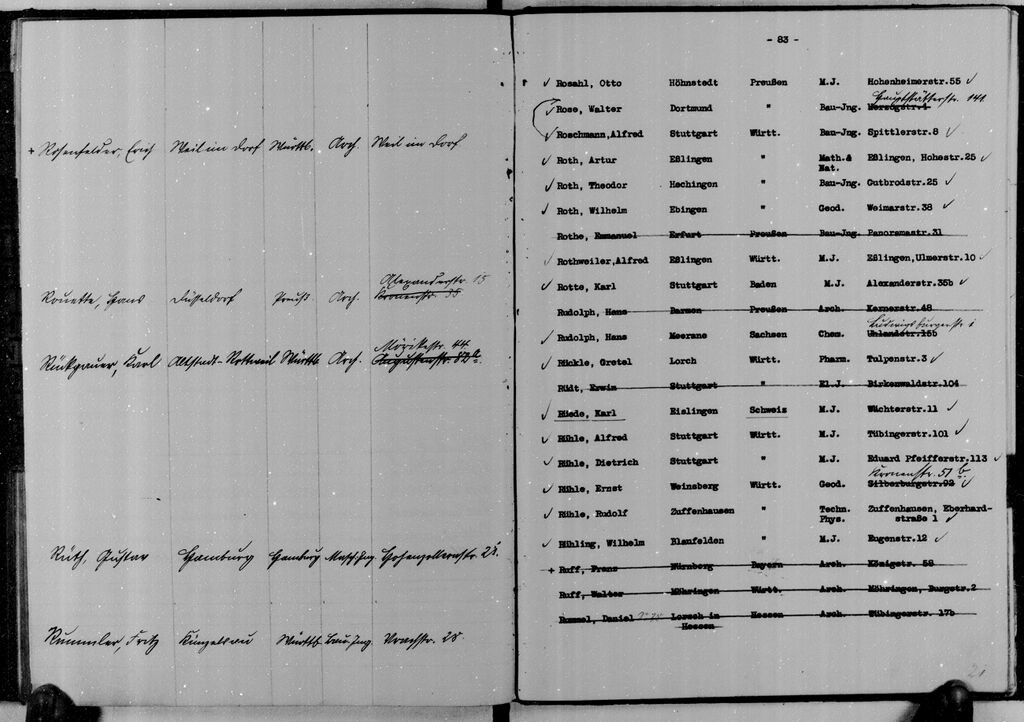 + Rosenfelder, Erich Weil im Dorf Württb. Arch. Weil im Dorf
Alexanderstr. 15
Rouette, Hans Düsseldorf Preuß. Arch. Kronenstr. 35
Mörikestr. 44
Rückgauer, Karl Altstadt-Rottweil Württb. Arch. Augustenstr. 82
Rüth, Gustav Hamburg Hamburg Masch.Ing. Hohenzollernstr. 25.
Rummler, Fritz Württb. Bau-Ing. 28.
- 83 -
Rosahl, Otto Höhnstedt Preußen M.J. Hohenheimerstr.55
Hauptstätterstr. 141.
Rose, Walter Dortmund " Bau-Jng. Herzogstr.4
Roschmann,Alfred Stuttgart Württ. Bau-Jng. Spittlerstr.8
Roth, Artur Eßlingen " Math.& Eßlingen, Hohestr.25
Nat.
Roth, Theodor Hechingen " Bau-Jng. Gutbrodstr.25
Roth, Wilhelm Ebingen " Geod. Weimarstr.38
Rothe, Emmanuel Erfurt Preußen Bau-Jng. Panoramastr.31
Rothweiler,Alfred Eßlingen Württ. M.J. Eßlingen,Ulmerstr.10
Rotte, Karl Stuttgart Baden M.J. Alexanderstr.35b
Rudolph, Hans Barmen Preußen Arch. Kernerstr.48
Ludwigsburgerstr.
Rudolph, Hans Meerane Sachsen Chem. Uhlandstr.15b
Rückle, Gretel Lorch Württ. Pharm. Tulpenstr.3
Rüdt, Erwin Stuttgart " El.J. Birkenwaldstr.104
Rüede, Karl Eislingen Schweiz M.J. Wächterstr.11
Rühle, Alfred Stuttgart Württ. M.J. Tübingerstr.101
Rühle, Dietrich Stuttgart " M.J. Eduard Pfeifferstr.113
Kronenstr. 51 b.
Rühle, Ernst Weinsberg Württ. Geod. Silberburgstr.92
Rühle, Rudolf Zuffenhausen " Techn. Zuffenhausen, Eberhard-
Phys. straße 1
Rühling, Wilhelm Blaufelden " M.J. Eugenstr.12
+ Ruff, Franz Nürnberg Bayern Arch. Königstr. 58
Ruff, Walter Möhringen Württ. Arch. Möhringen, Burgstr.2
Rummel, Daniel Lorsch in Hessen Arch. Tübingerstr. 17b
Hessen